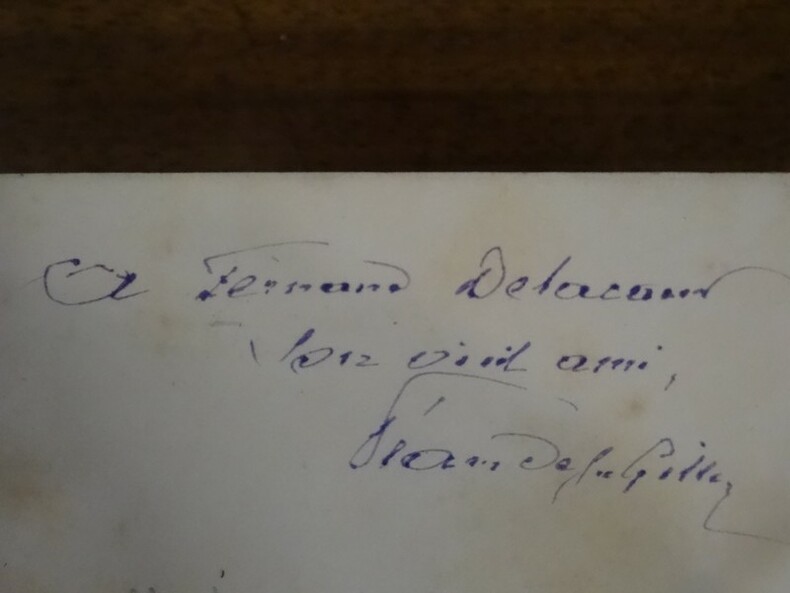 A Fernand Delacour
son vieil ami,
Jean De La